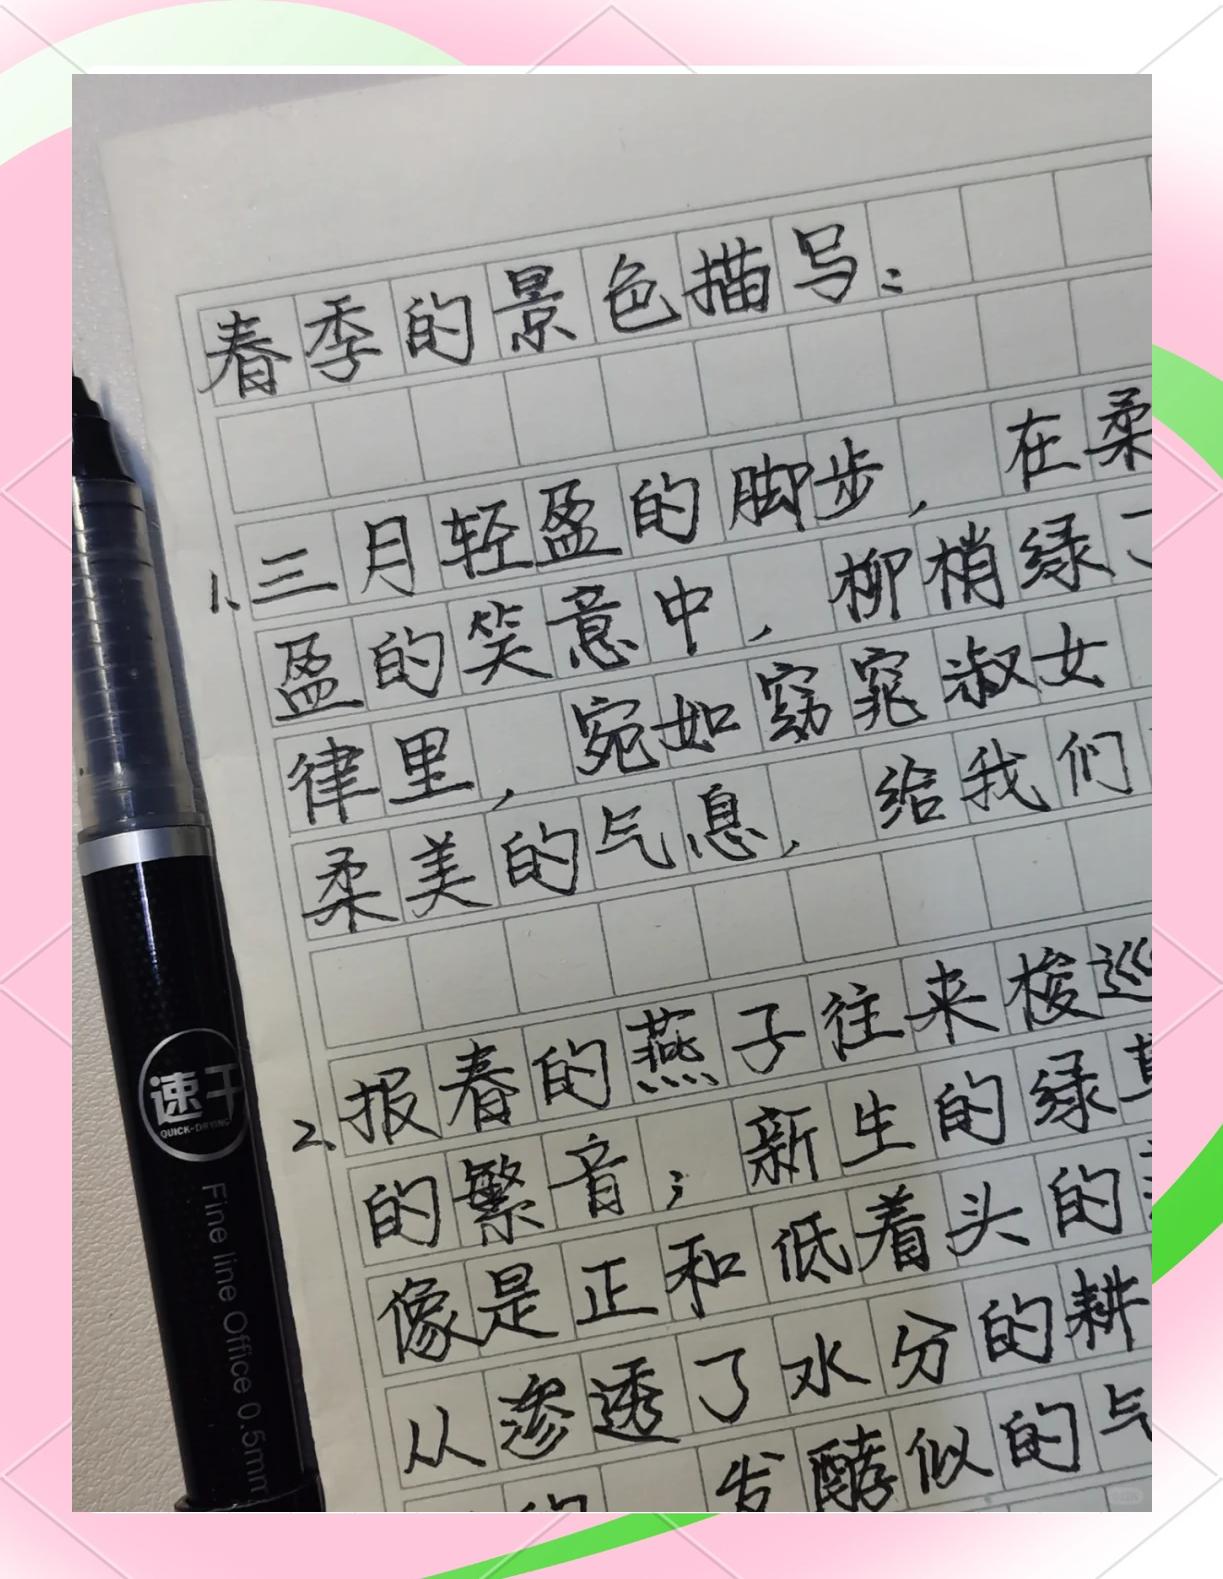 春季的景色描写：
1.三月轻盈的脚步，在柔
盈的笑意中，柳梢绿了
律里，宛如窈窕淑女
柔美的气息，给我们
2.报春的燕子往来梭巡
的繁音；新生的绿
像是正和低着头的
从渗透了水分的耕
发酵似的气
速干
QUICK-DRYING
Fine line Office 0.5mm